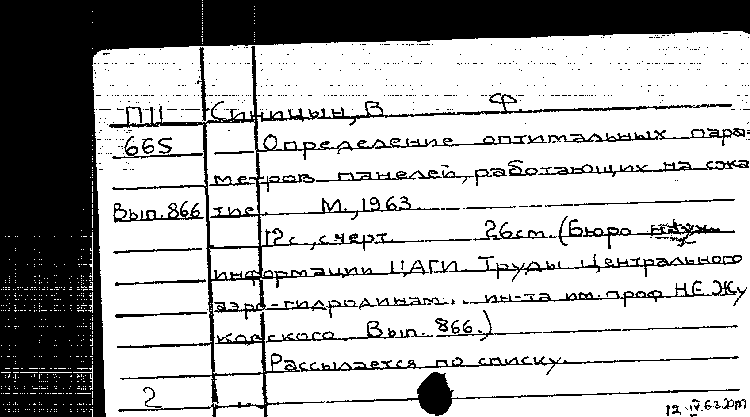 П11 Синицын, В Ф.
665 Определение оптимальных пара-
метров панелей, работающих на сжа
Вып. 866 тие. М., 1963.
12 с., с черт. 26 см. (Бюро науч.
информации ЦАГИ. Труды Центрального
аэро-гидродинам... ин-та им. проф. Н.Е. Жу
ковского. Вып. 866.)
Рассылается по списку.
2